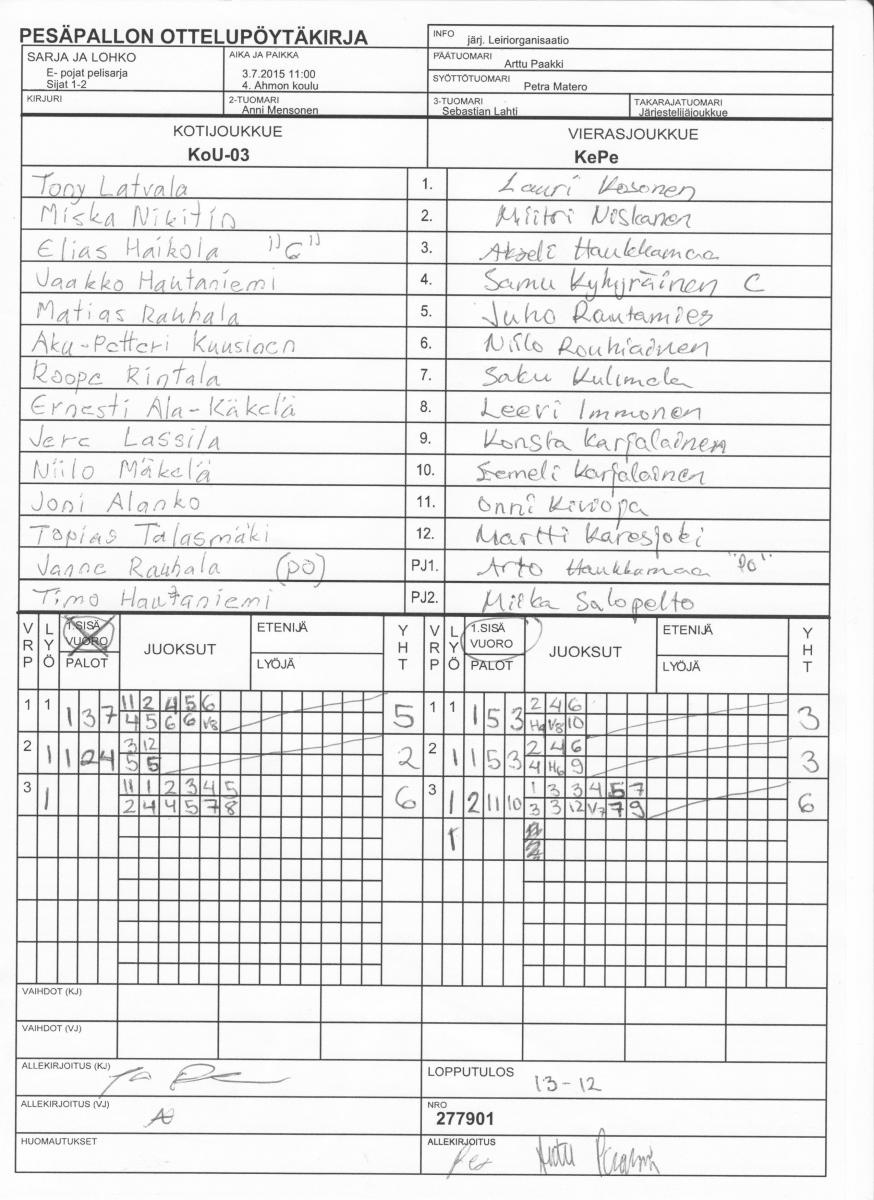 PESÄPALLON OTTELUPÖYTÄKIRJA
INFO järj. Leiriorganisaatio
SARJA JA LOHKO
E- pojat pelisarja
Sijat 1-2
AIKA JA PAIKKA
3.7.2015 11:00
4. Ahmon koulu
PÄÄTUOMARI Arttu Paakki
SYÖTTÖTUOMARI Petra Matero
KIRJURI
2-TUOMARI
Anni Mensonen
3-TUOMARI
Sebastian Lahti
TAKARAJATUOMARI
Järjestelijäjoukkue
KOTIJOUKKUE
KoU-03
VIERASJOUKKUE
KePe
Tony Latvala 1. Lauri Kosonen
Miska Nikitin 2. Miitri Niskanen
Elias Haikola "C" 3. Akseli Haukkamaa
Jaakko Hautaniemi 4. Samu Kyhyräinen C
Matias Rauhala 5. Juho Rautamies
Aku-Petteri Kuusinen 6. Niilo Rouhiainen
Roope Rintala 7. Saku Kulimala
Ernesti Ala-Käkelä 8. Leevi Immonen
Jere Lassila 9. Konsta Karjalainen
Niilo Mäkelä 10. Eemeli Karjalainen
Joni Alanko 11. Onni Kiviopa
Topias Talasmäki 12. Martti Karesjoki
Janne Rauhala (PO) PJ1. Arto Haukkamaa "PO"
Timo Hautaniemi PJ2. Miika Salopelto
VRP LYÖ 1.SISÄ VUORO PALOT JUOKSUT ETENIJÄ LYÖJÄ YHT VRP LYÖ 1.SISÄ VUORO PALOT JUOKSUT ETENIJÄ LYÖJÄ YHT
1 1 1 3 7 11 2 4 5 6 5 1 1 1 5 3 2 4 6 3
4 5 6 6 V8 H9 V8 10
2 1 1 2 4 3 12 2 2 1 1 5 3 2 4 6 3
5 5 4 H6 9
3 1 11 1 2 3 4 5 6 3 1 2 11 10 1 3 3 4 5 7 6
2 4 4 5 7 8 3 3 12 V7 7 9
1
VAIHDOT (KJ)
VAIHDOT (VJ)
ALLEKIRJOITUS (KJ)
LOPPUTULOS 13-12
ALLEKIRJOITUS (VJ)
NRO
277901
HUOMAUTUKSET
ALLEKIRJOITUS